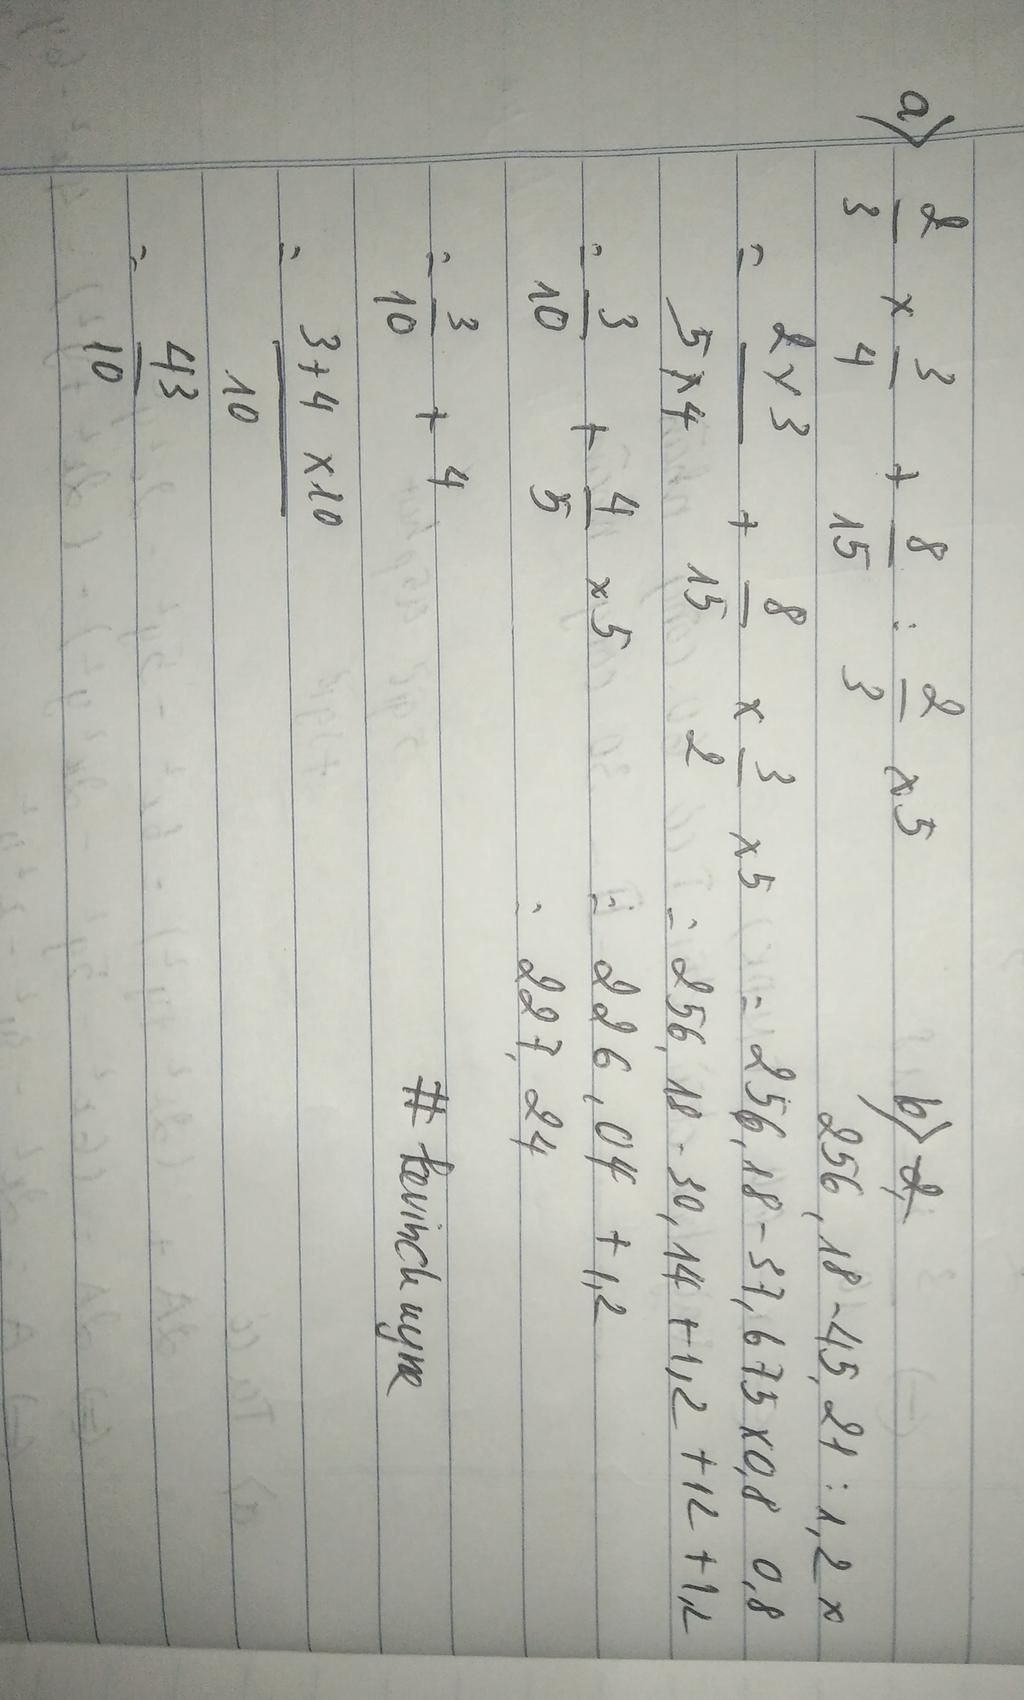 a) 2/3 x 3/4 + 8/15 : 2/3 x 5
= 2x3/5x4 + 8/15 x 3/2 x 5
= 3/10 + 4/5 x 5
= 3/10 + 4
= 3+4 x10/10
= 43/10
b) 2,
256,18 - 45,21 : 1,2 x
= 256,18 - 37,675 x 0,8 0,8
= 256,18 - 30,14 + 1,2 + 12 + 1,2
= 226,04 + 1,2
= 227,24
#